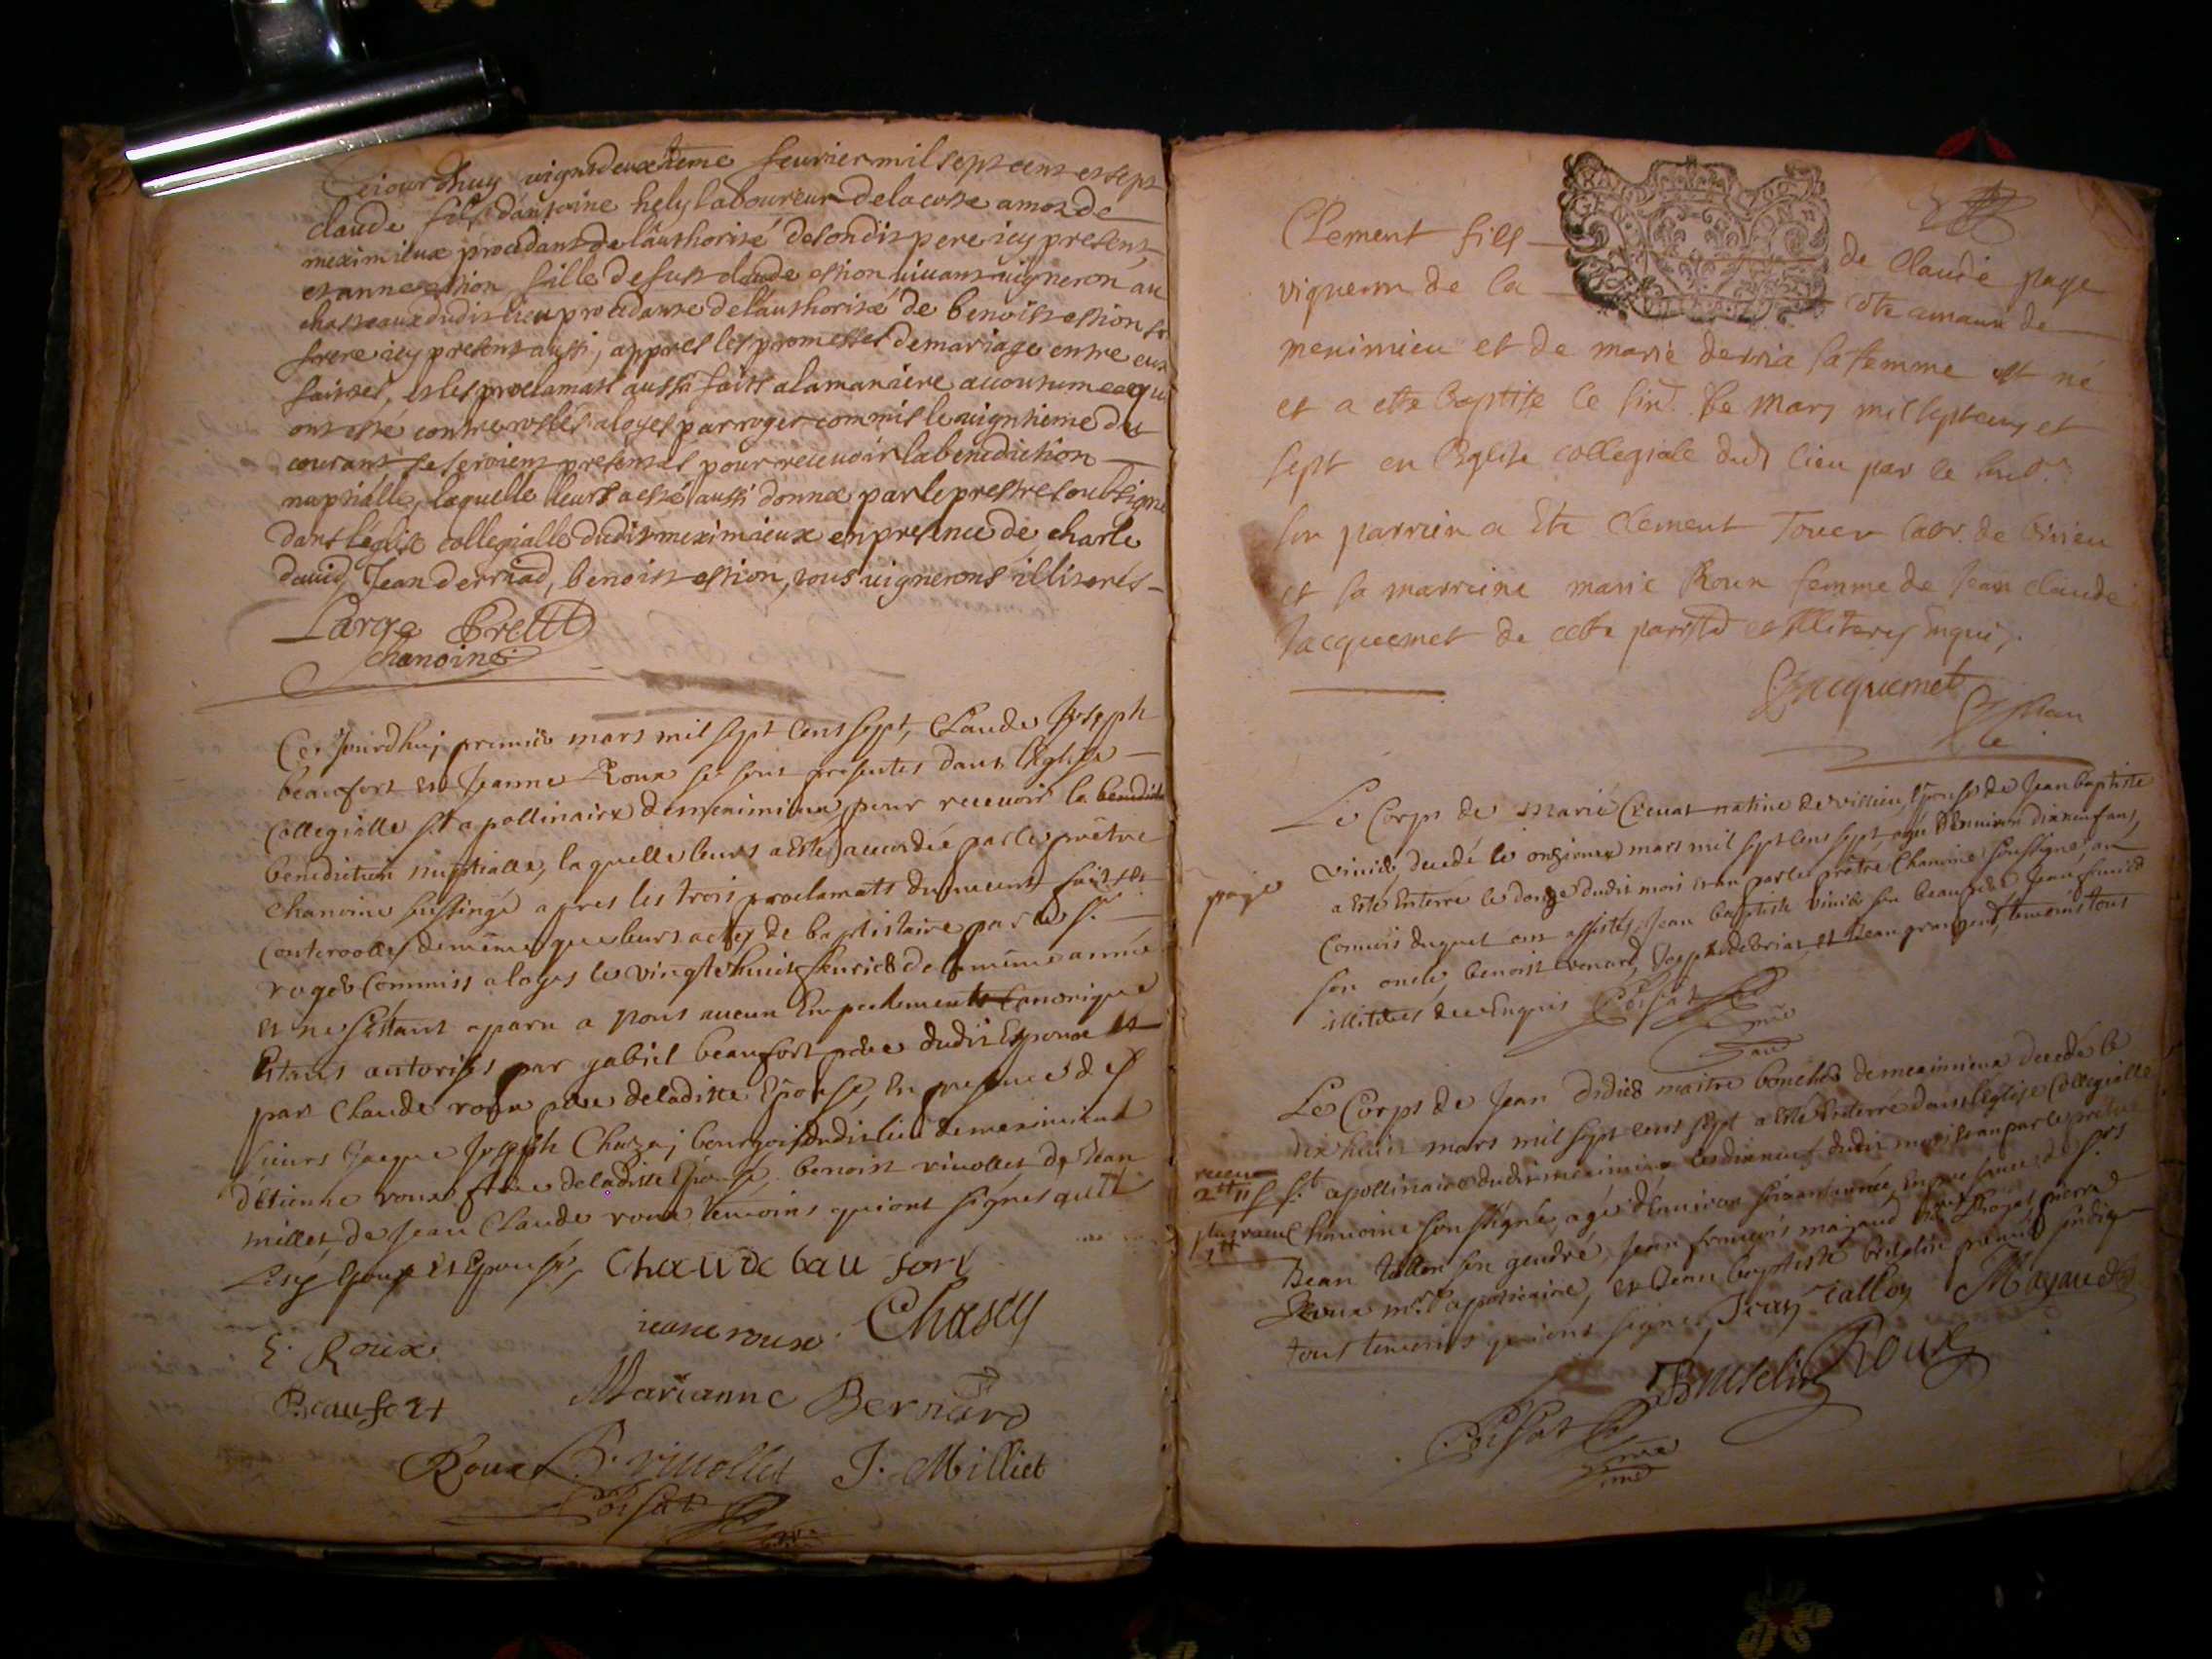 Cejourdhuy vignt deuxiieme feuvrier mil sept cent et sept
claude fils d'antoine hely laboureur de la coste amon de
meximieux procedant de l'authorité de son dit pere icy present,
et anne estion fille de fust claude estion vivant vigneron au
chasteaux dudit lieu procedante de l'authorité de benoist estion so
frere icy present aussi, appres les promesses de mariage entre eux
faittes, et les proclamats aussi faits a la maniere accoutumee qui
ont esté contrerollés a loyes par roger commis le vigntieme du
courant se seroient presentés pour recevoir la benediction
nuptialle, laquelle leurs a esté aussi donnée par le prestre soubsigné
dans l'églist collegialle dudit meximieux en presence de charle
david, Jean derriad, benoist estion, tous vignerons illiterés
Large Prettre
chanoine
Ce Jourdhuj premier mars mil sept cent sept, Claude Joseph
beaufort et Jeanne Roux se sont presentes dans l'Eglise
Collegialle st apollinaire de meximieux pour recevoir la benedict
benediction nuptialle, laquelle leurs a esté accordée par le prêtre
Chanoine sussigné apres les trois proclamats duement faits et
conteroolles de même que leurs actes de baptistaire par le sr
roger Commis a loyes le vingt et huict feuvrier de la même année
et ne s'estant aparu a nous aucun Empechement Canonique
Estans autorises par gabriel beaufort pere dudit Espoux et
par Claude roux pere de laditte Epouse, En presence de
sieurs Jacque Joseph Chazej bourgois dudit lieu de meximieux
d'étienne roux frere de ladite Epouse, benoist viuollet, de Jean
millet, de Jean Claude roux temoins qui ont signes avec
Lesd Epoux et Epouse, Chaude bau fort
E. Roux jeane roux Chasey
Beaufort Marianne Bernard
Roux B. viuollet J. Milliet
Poisat
Clement fils de Claude page
vigneron de la Côte amaux de
meximieu et de marie derria sa femme est né
et a ette baptise le sixe. de Mars mil sept cens et
sept en l'Eglise collegiale dud lieu par le sous
son parrien a Ete Clement Tover labr. de
et sa marreine marie Roux femme de Jean claude
Jacquemet de cette parisse et Illiteres Enquis.
Jacquemet
Le Corps de Marie Cruat natiue de villieu, Epouse de Jean baptiste
Vinier, decedé le onzieme mars mil sept cens sept, agée d'Enuiron dix neuf ans,
page
a esté Enterré le douze dudit mois et an par le prêtre Chanoine soussigné, au
Convois duquel ont assistes, Jean baptiste Vinier son beau pere Jean
son oncle, benoist, Joseph et Jean grangent, temoins tous
illiteres de ce Enquis Poisat
Le Corps de Jean Didier maitre boucher de meximieux decedé le
dix huict mars mil sept cens sept a esté Enterré dans l'Eglise Collegialle
receu
2tt st apollinaire dudit meximieux le dix neuf dudit mois et an par le prêtre
plus receu Chanoine soussigné, agé d'Enuiron soixante années, En presence de srs
1tt
Jean tallon son gendre, Jean françois majaud, pierre
Roux mre apoticaire, et Jean baptiste premier sindiq
tous temoins qui ont signes, Jean Tallon Mayaud
Roux
Poisat